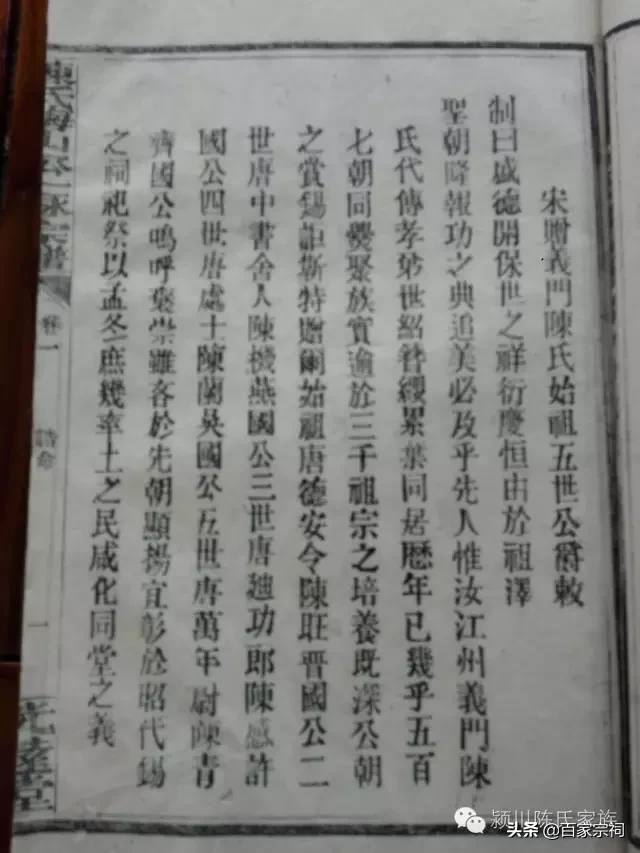 宋贈義門陳氏始祖五世公爵敕
制曰盛德開保世之祥衍慶恒由於祖澤
聖朝隆報功之典追美必及乎先人惟汝江州義門陳
氏代傳孝弟世紹簪纓累葉同居歷年已幾乎五百
七朝同爨聚族實逾於三千祖宗之培養既深公朝
之賞錫詎斯特贈爾始祖唐德安令陳旺晉國公二
世唐中書舍人陳機燕國公三世唐廸功郎陳感許
國公四世唐處士陳蘭吳國公五世唐萬年尉陳青
齊國公嗚呼褒崇雖吝於先朝顯揚宜彰於昭代錫
之祠祀祭以孟冬庶幾率土之民咸化同堂之義
陳氏海山公一脉宗譜
卷一
誥命
一
頴川陈氏家族
头条 @百家宗祠